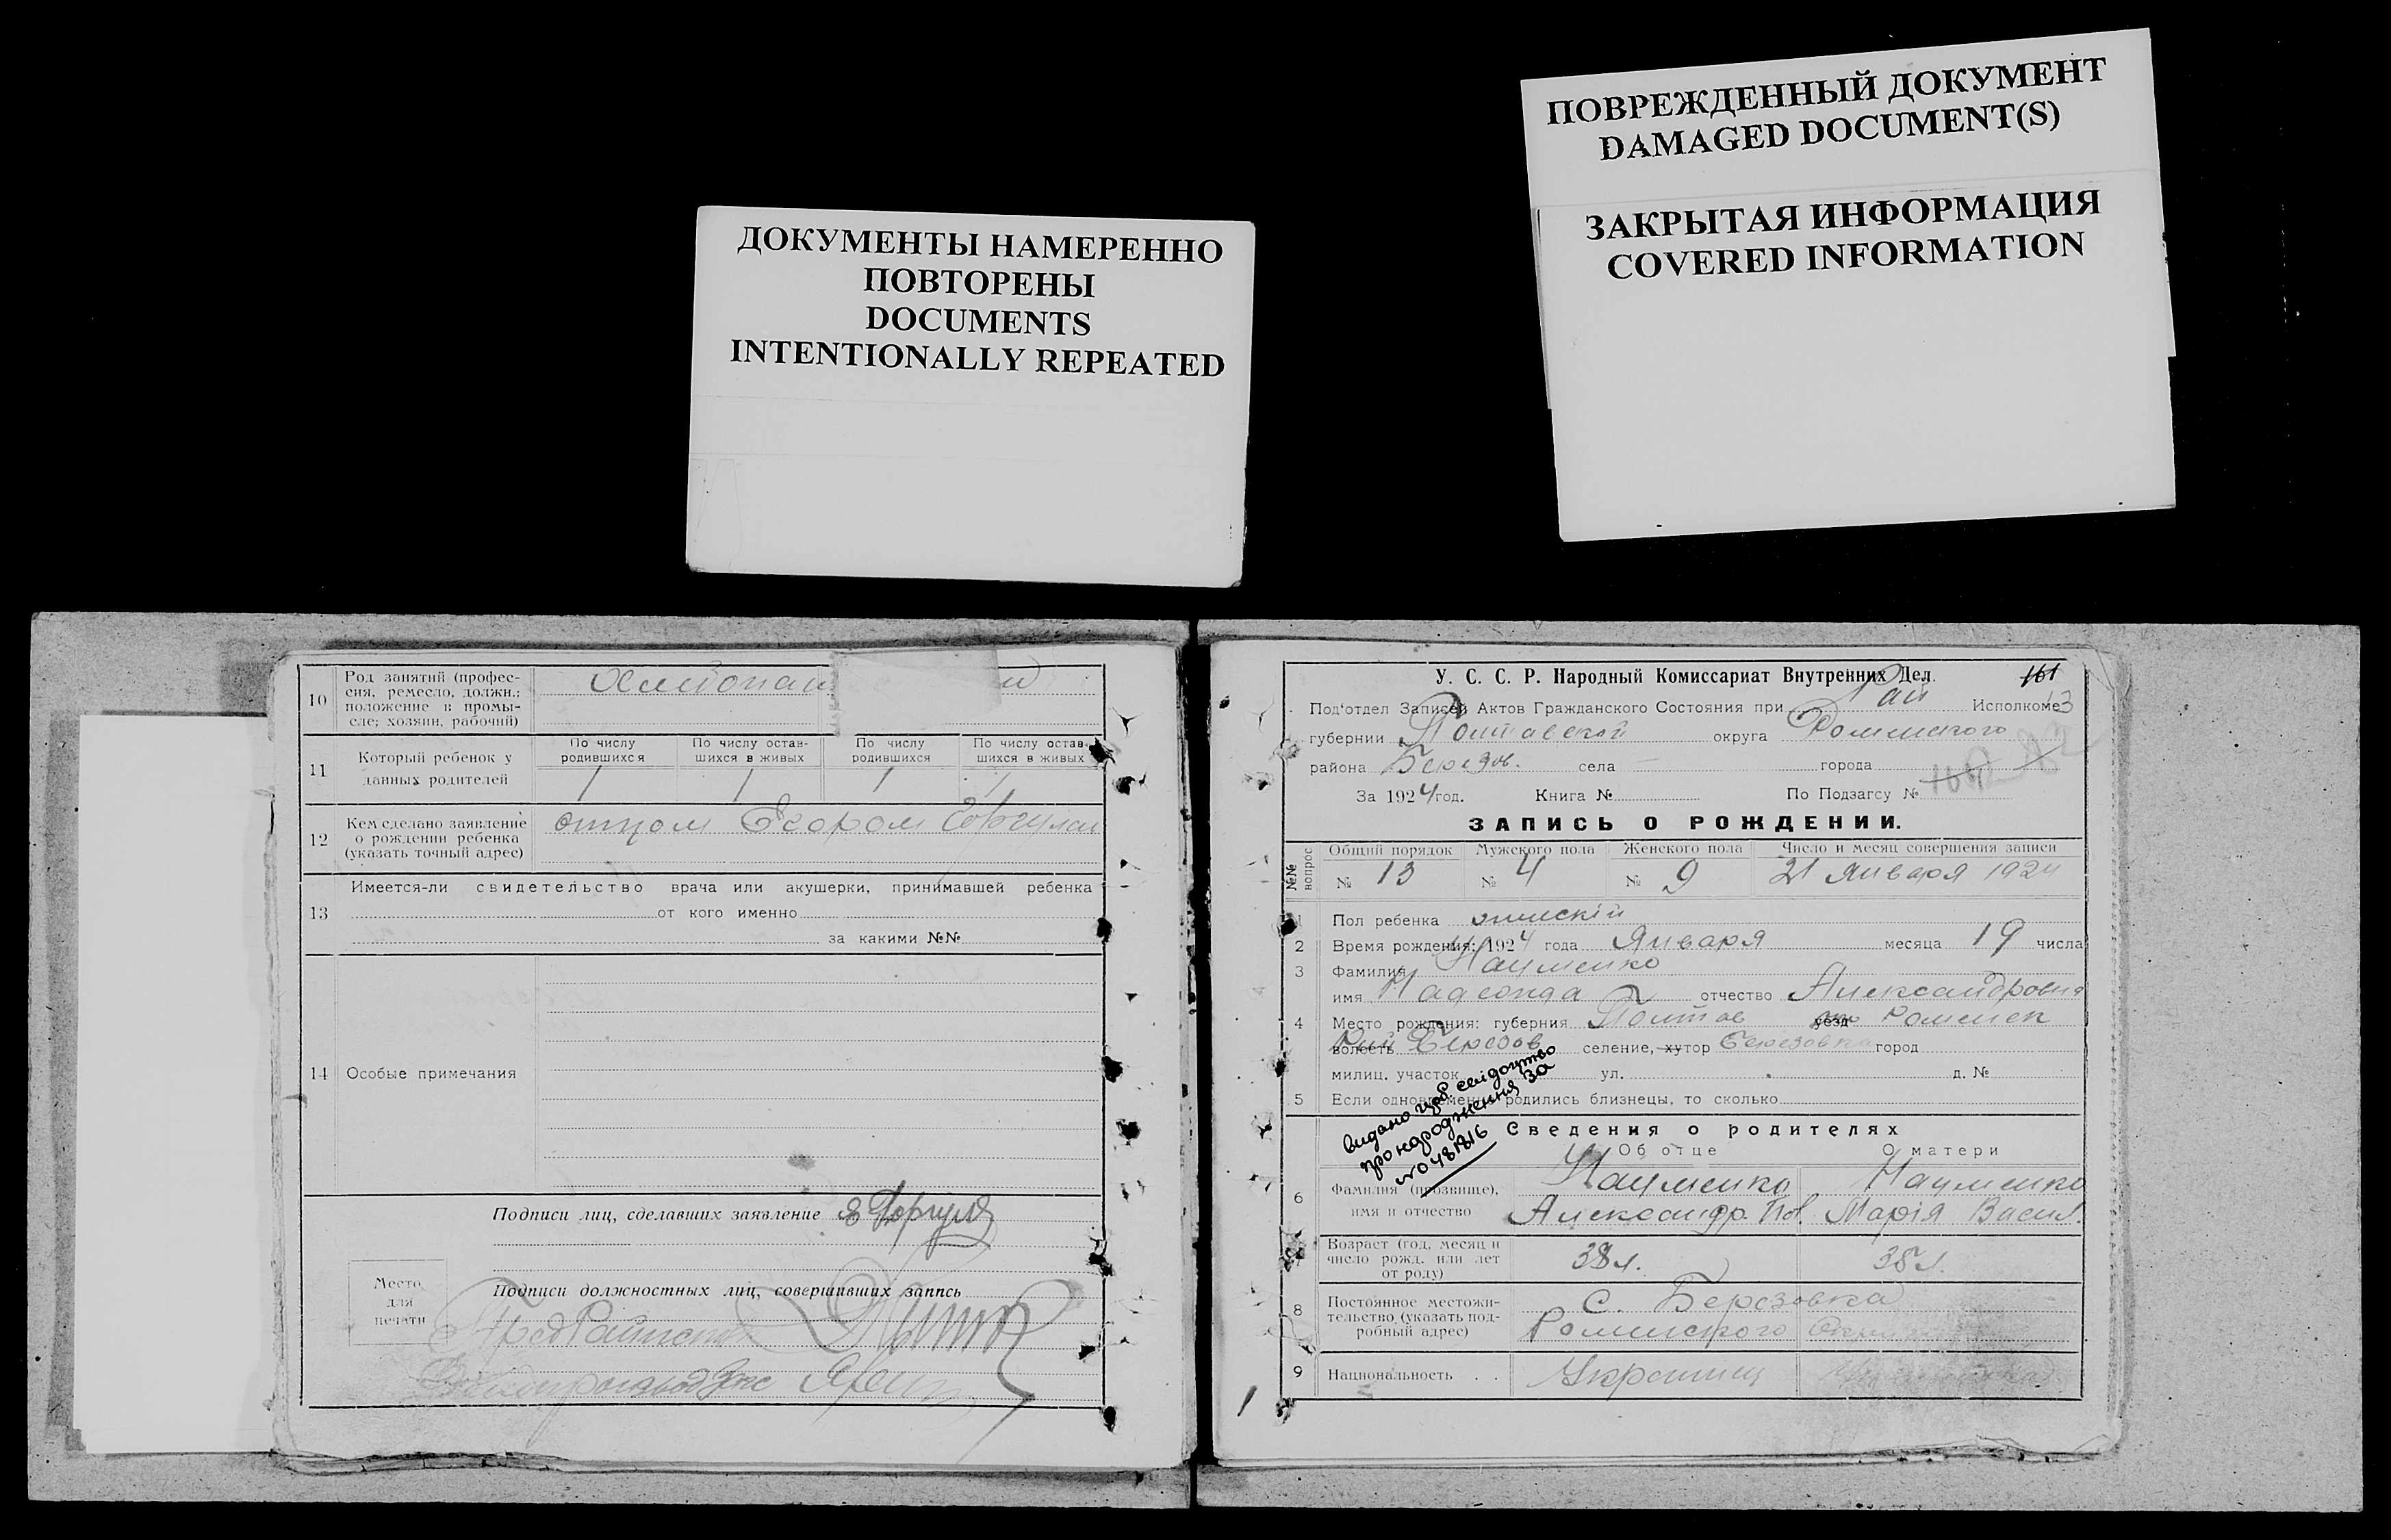 ПОВРЕЖДЕННЫЙ ДОКУМЕНТ
DAMAGED DOCUMENT(S)
ЗАКРЫТАЯ ИНФОРМАЦИЯ
COVERED INFORMATION
ДОКУМЕНТЫ НАМЕРЕННО
ПОВТОРЕНЫ
DOCUMENTS
INTENTIONALLY REPEATED
10 Род занятий (профес-
сия, ремесло, должн.;
положение в промы-
сле; хозяин, рабочий)
11 Который ребенок у
данных родителей
По числу
родившихся
По числу остав-
шихся в живых
По числу
родившихся
По числу остав-
шихся в живых
1 1 1 1
12 Кем сделано заявление
о рождении ребенка
(указать точный адрес)
отцом
13 Имеется-ли свидетельство врача или акушерки, принимавшей ребенка
от кого именно
за какими №№
14 Особые примечания
Подписи лиц, сделавших заявление
Место
для
печати
Подписи должностных лиц, совершивших запись
У. С. С. Р. Народный Комиссариат Внутренних Дел.
161
Под'отдел Записей Актов Гражданского Состояния при Рай Исполкоме
13
губернии Полтавской округа Роменского
района Березов. села города
За 1924 год. Книга № По Подзагсу №
ЗАПИСЬ О РОЖДЕНИИ.
№№ вопрос
Общий порядок Мужского пола Женского пола Число и месяц совершения записи
№ 13 № 4 № 9 21 Января 1924
1 Пол ребенка
2 Время рождения: 1924 года Января месяца 19 числа
3 Фамилия Науменко
имя отчество Александровна
4 Место рождения: губерния Полтав уезд Роменск
волость Березов селение, хутор Березовка город
милиц. участок ул. д. №
5 Если одновременно родились близнецы, то сколько
видано свідоцтво
про народження за
№ 0481816
Сведения о родителях
Об отце О матери
6 Фамилия (прозвище),
имя и отчество
Науменко Науменко
Александр. Пов. Марія Васил.
7 Возраст (год, месяц и
число рожд. или лет
от роду)
38 л. 38 л.
8 Постоянное местожи-
тельство (указать под-
робный адрес)
С. Березовка
Роменского
9 Национальность
Украинец
1